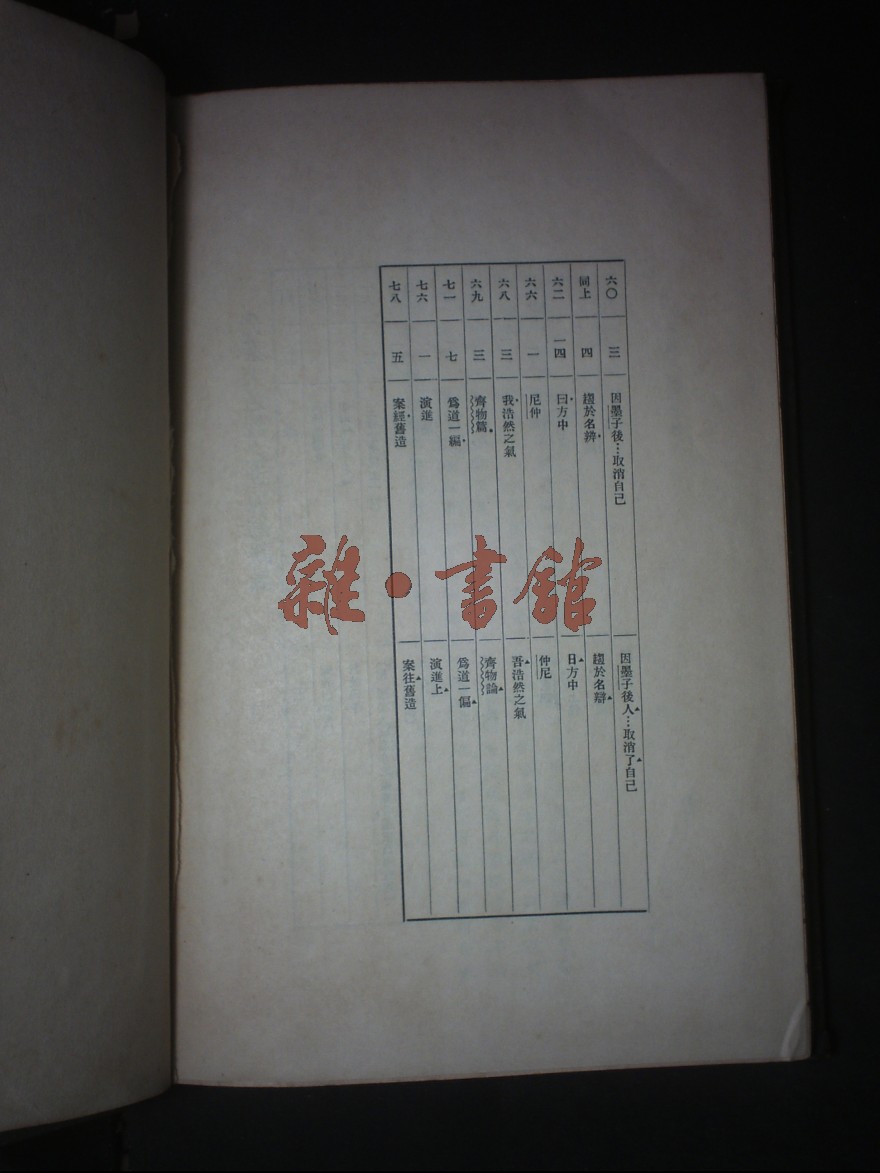 六〇 三 因墨子後…取消自己 因墨子後人…取消了自己
同上 四 趨於名辨 趨於名辯
六二 一四 曰方中 日方中
六六 一 尼仲 仲尼
六八 三 我浩然之氣 吾浩然之氣
六九 三 齊物篇 齊物論
七一 七 爲道一編 爲道一偏
七六 一 演進 演進上
七八 五 案經舊造 案往舊造
雜·書館